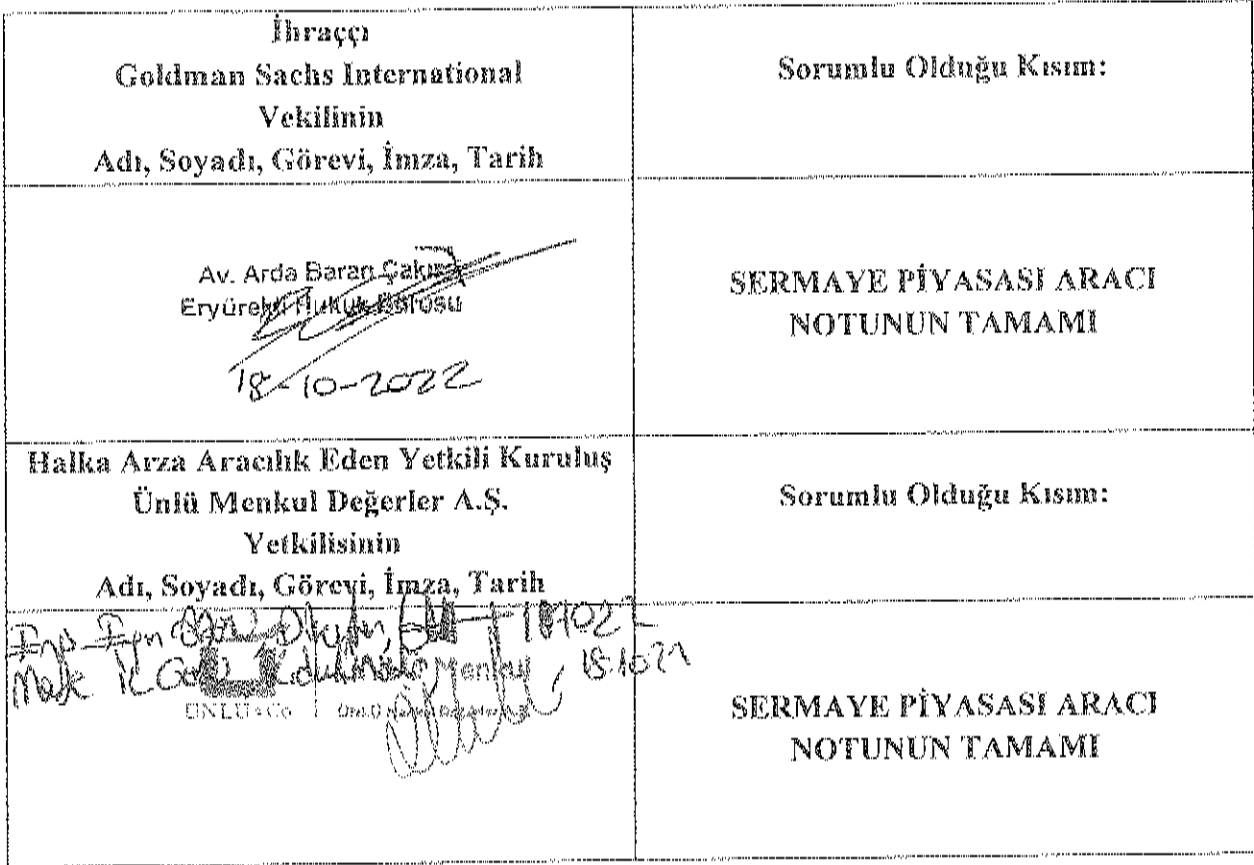 İhraççı
Goldman Sachs International
Vekilinin
Adı, Soyadı, Görevi, İmza, Tarih
Sorumlu Olduğu Kısım:
Av. Arda Baran
Hukuk Bürosu
18-10-2022
SERMAYE PİYASASI ARACI
NOTUNUN TAMAMI
Halka Arza Aracılık Eden Yetkili Kuruluş
Ünlü Menkul Değerler A.Ş.
Yetkilisinin
Adı, Soyadı, Görevi, İmza, Tarih
Sorumlu Olduğu Kısım:
Menkul
ÜNLÜ & Co
SERMAYE PİYASASI ARACI
NOTUNUN TAMAMI